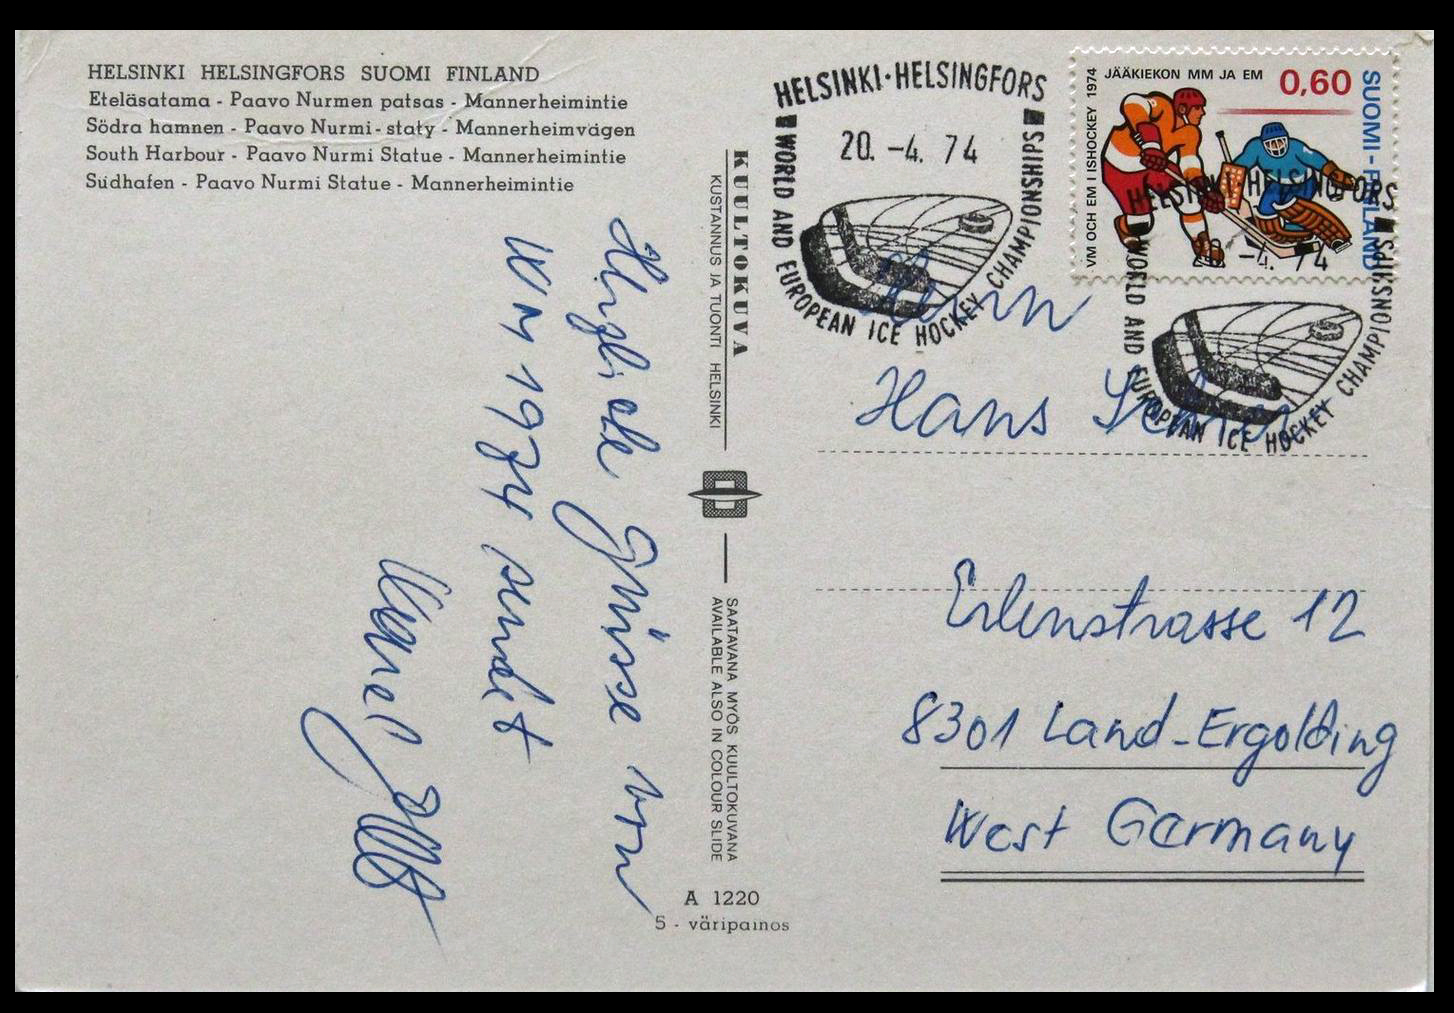 HELSINKI HELSINGFORS SUOMI FINLAND
Eteläsatama - Paavo Nurmen patsas - Mannerheimintie
Södra hamnen - Paavo Nurmi - staty - Mannerheimvägen
South Harbour - Paavo Nurmi Statue - Mannerheimintie
Südhafen - Paavo Nurmi Statue - Mannerheimintie
HELSINKI · HELSINGFORS
20. -4. 74
WORLD AND EUROPEAN ICE HOCKEY CHAMPIONSHIPS
JÄÄKIEKON MM JA EM
0,60
SUOMI - FINLAND
VM OCH EM I ISHOCKEY 1974
HELSINKI · HELSINGFORS
20. -4. 74
WORLD AND EUROPEAN ICE HOCKEY CHAMPIONSHIPS
KUULTOKUVA
KUSTANNUS JA TUONTI HELSINKI
SAATAVANA MYÖS KUULTOKUVANA
AVAILABLE ALSO IN COLOUR SLIDE
A 1220
5 - väripainos
Herzliche Grüsse von
WM 1974 sendet
Herrn
Hans
Erlenstrasse 12
8301 Land-Ergolding
West Germany